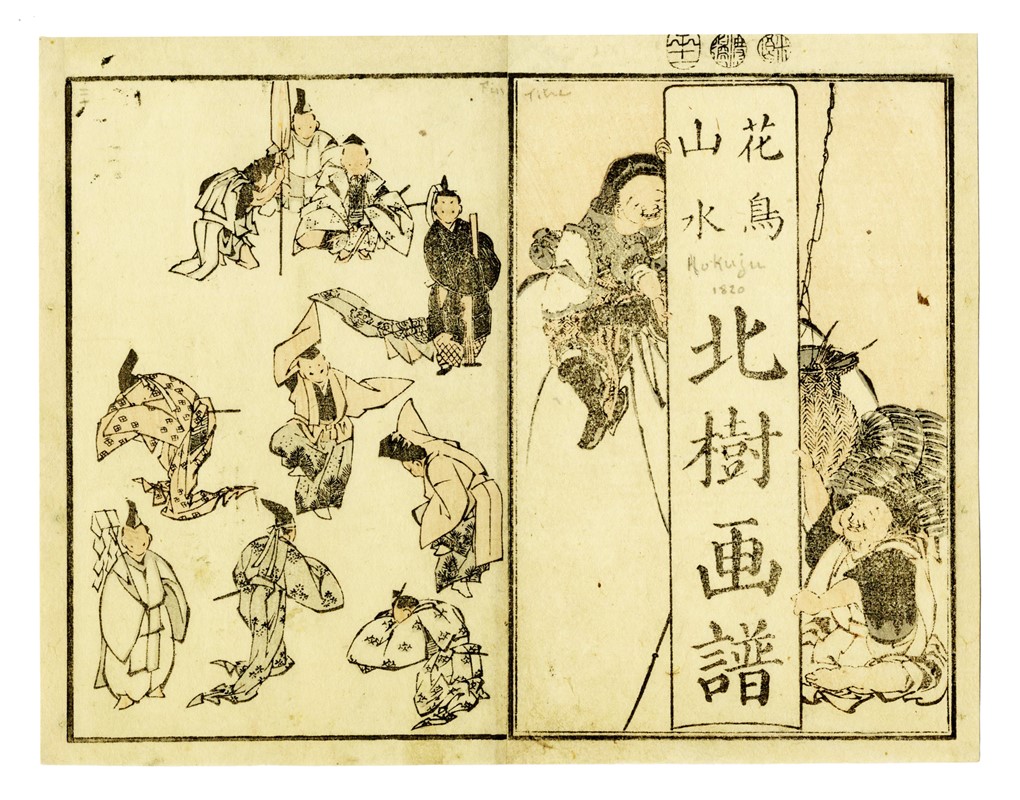 花鳥
山水
Hokuju
1820
北樹画譜
Title